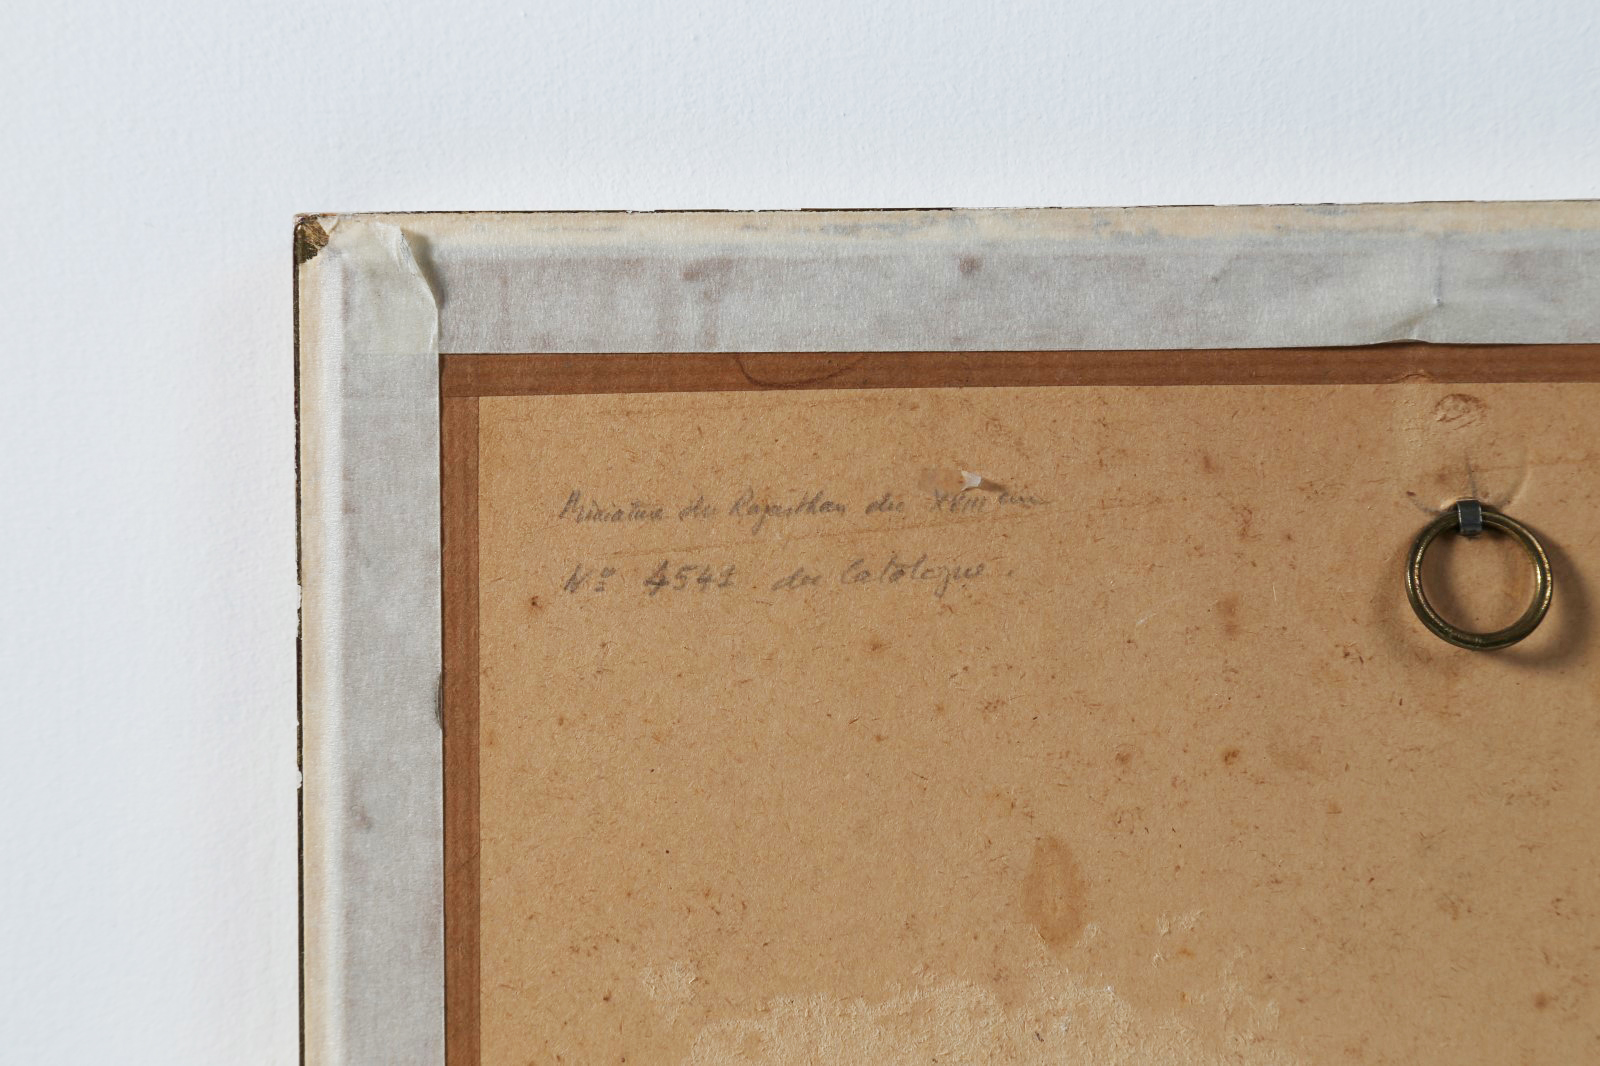 Miniature du Rajasthan du XVIII em
Nº 4541 du Catalogue.